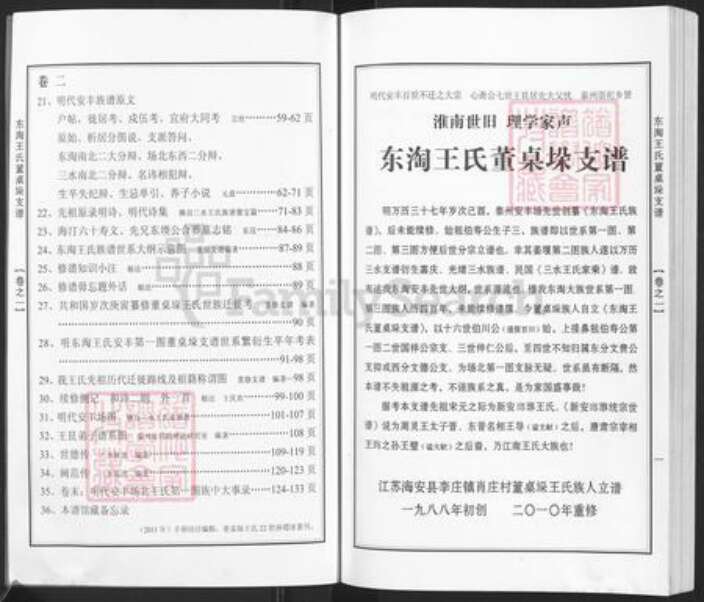 东淘王氏董桌垛支谱
【卷之一】
卷 二
21、明代安丰族谱原文
户帖、徙居考、成伍考、宜府大同考 59-62 页
原始、析居分图说、支派答问、
东淘南北二大分辩、场北东西二分辩、
三水南北二分辩、名讳相犯辩、
生卒失纪辩、生忌单引、养子小说 62-71 页
22、先祖原录明诗、明代诗集 71-83 页
23、海汀六十寿文、先兄东塘公合葬墓志铭 84-87 页
24、东淘王氏族谱世系大纲示意图 87-89 页
25、修谱知识小汪 88 页
26、修谱御忘题外话 89 页
27、共和国岁次庚寅纂修董桌垛王氏世族迁徙考
90 页
28、明东淘王氏安丰第一图董桌垛支谱世系繁衍生卒年考表
91-98 页
29、我王氏先祖历代迁徙路线及祖籍称谓图 98 页
30、续修侧记 99-100 页
31、明代安丰场图 101-107 页
32、王艮弟子谱系图 108 页
33、世德传 109-119 页
34、阃范传 120-123 页
35、卷末：明代安丰场北王氏第一图族中大事录 124-133 页
36、本谱馆藏备忘录
明代安丰百世不迁之大宗 心斋公七世王艮居处大父忱 泰州崇祀乡贤
淮南世旧 理学家声
东淘王氏董桌垛支谱
明万历三十七年岁次己酉，泰州安丰场先世创纂《东淘王氏族
谱》，后未能续修。始祖伯寿公生子三，族谱即以世系第一图、第
二图、第三图方便后世分宗立谱也。幸其姜堰第二图族人遂以万历
三水支谱衍生嘉庆、光绪三水族谱、民国《三水王氏家乘》谱，故
有述我东淘安丰先世大纲，世系源流也。惜我东淘大族世系第一图、
第三图族人历四百年，未能续修谱牒。今董桌垛族人自立《东淘王
氏董桌垛支谱》，以十六世伯川公 始，上接鼻祖伯寿公第
一图二世国祥公宗支、三世仲仁公后，至四世不知归属东分文贵公
支抑或西分文德公支，为场北第一图支脉无疑。世系虽有断隔，然
本谱不失祖源之考、不诬族系之真，是为家国盛事哉！
据考本支谱先祖宋元之际为新安琅琊王氏。《新安琅琊统宗世
谱》说为周灵王太子晋、东晋名相王导 之后。唐肃宗宰相
王玙之孙王璧 之后裔，乃江南王氏大族也！
江苏海安县李庄镇肖庄村董桌垛王氏族人立谱
一九八八年初创 二〇一〇年重修
东淘王氏董桌垛支谱
【卷之一】
一
FamilySearch